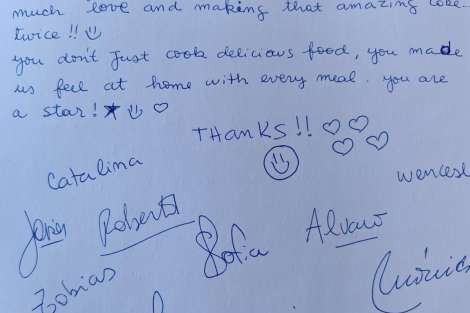 much love and making that amazing
twice!!
you don't just cook delicious food, you made
us feel at home with every meal. you are
a star!
THANKS!!
Catalina
wencesl
Javier Roberto Sofia Alvaro
Tobias Mónica